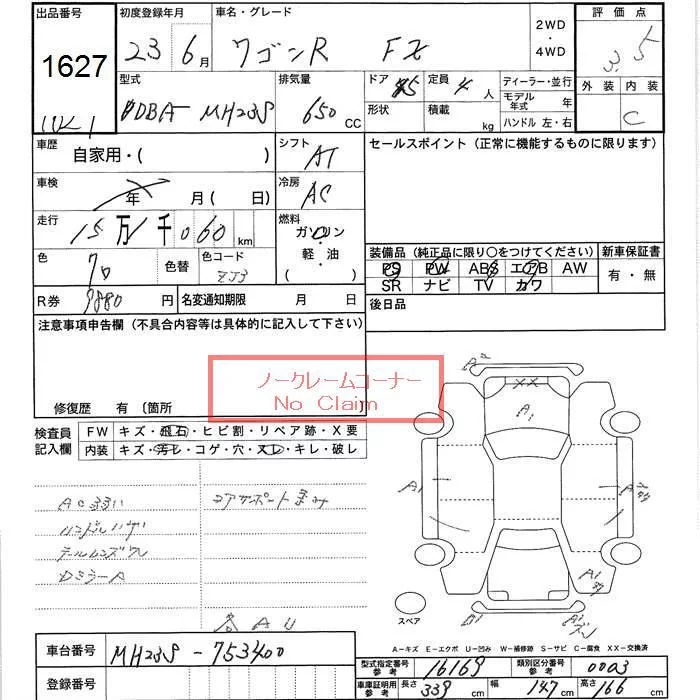 出品番号 初度登録年月 車名・グレード 2WD ・ 4WD 評価点
1627 23 6月 ワゴンR FX 3.5
型式 排気量 ドア 定員 ディーラー・並行 外装 内装
DBA- MH23S 650 CC 5 4人 モデル年式 年 C
形状 積載 kg ハンドル 左・右
車歴 自家用・( ) シフト AT セールスポイント(正常に機能するものに限ります)
車検 年 月(日) 冷房 AC
走行 15万1千060km 燃料 ガソリン・軽・油 ( )
装備品(純正品に限り○をつけてください) 新車保証書
色 色替 色コード ZJ3 PS PW ABS エアB AW 有・無
SR ナビ TV カワ
R券 9880円 名変通知期限 月 日 後日品
注意事項申告欄(不具合内容等は具体的に記入して下さい)
ノークレームコーナー
No Claim
修復歴 有〔箇所 〕
検査員記入欄 FW キズ・飛石・ヒビ割・リペア跡・X要
内装 キズ・汚レ・コゲ・穴・スレ・キレ・破レ
XX
A1
A1
ハンドルハゲ コアサポート
テールレンズワレ
DミラーA
A1
スペア
AAU
A-キズ E-エクボ U-凹み W-補修跡 S-サビ C-腐食 XX-交換済
車台番号 MH23S - 753400
型式指定番号 参考 16169 類別区分番号 参考 0003
登録番号
車庫証明用 参考 長さ 339 cm 幅 147 cm 高さ 166 cm